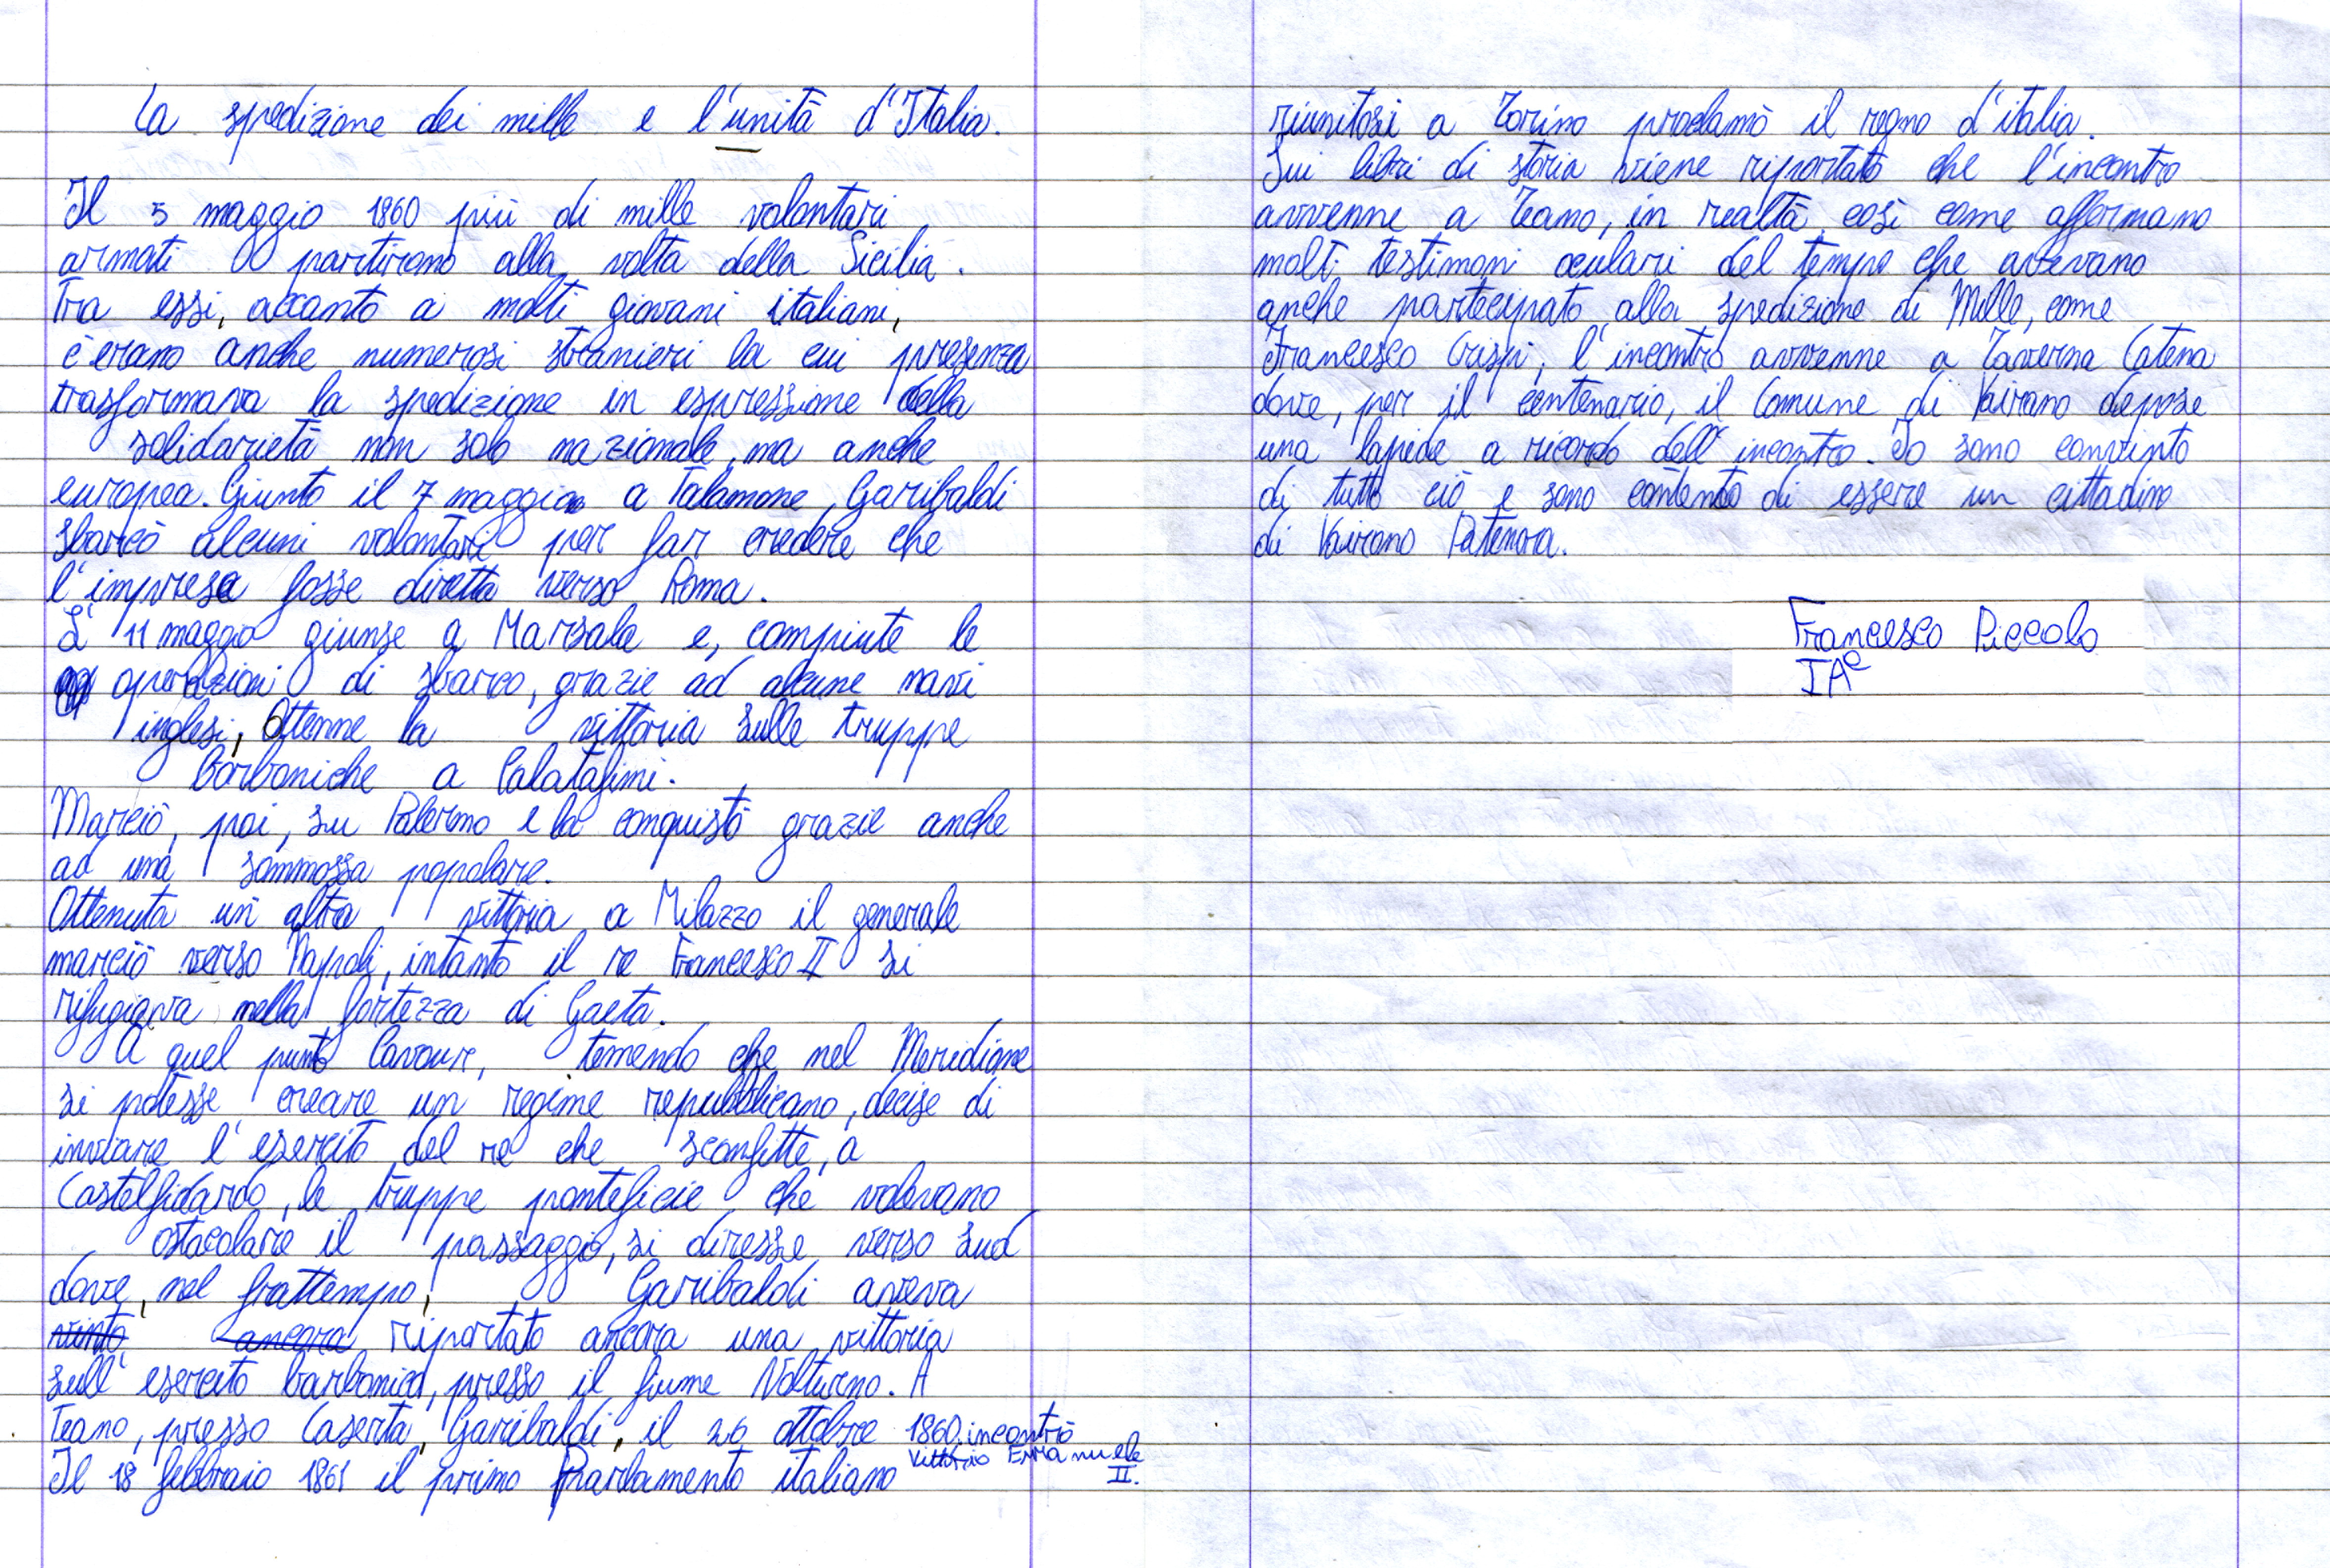 La spedizione dei mille e l'unità d'Italia.
Il 5 maggio 1860 più di mille volontari
armati partirono alla volta della Sicilia.
Tra essi, accanto a molti giovani italiani,
c'erano anche numerosi stranieri la cui presenza
trasformava la spedizione in espressione della
solidarietà non solo nazionale, ma anche
europea. Giunto il 7 maggio a Talamone, Garibaldi
sbarcò alcuni volontari per far credere che
l'impresa fosse diretta verso Roma.
L'11 maggio giunse a Marsala e, compiute le
operazioni di sbarco, grazie ad alcune navi
inglesi, ottenne la vittoria sulle truppe
borboniche a Calatafimi.
Marciò, poi, su Palermo e la conquistò grazie anche
ad una sommossa popolare.
Ottenuta un'altra vittoria a Milazzo il generale
marciò verso Napoli, intanto il re Francesco II si
rifugiava nella fortezza di Gaeta.
A quel punto Cavour, temendo che nel Meridione
si potesse creare un regime repubblicano, decise di
inviare l'esercito del re che sconfitte, a
Castelfidardo, le truppe pontificie che volevano
ostacolare il passaggio, si diresse verso sud
dove, nel frattempo, Garibaldi aveva
vinto ancora riportato ancora una vittoria
sull'esercito borbonico, presso il fiume Volturno. A
Teano, presso Caserta, Garibaldi, il 26 ottobre 1860 incontrò
Vittorio Emanuele II.
Il 18 febbraio 1861 il primo Parlamento italiano
riunitosi a Torino proclamò il regno d'italia.
Sui libri di storia viene riportato che l'incontro
avvenne a Teano, in realtà, così come affermano
molti testimoni oculari del tempo che avevano
anche partecipato alla spedizione di Mille, come
Francesco Crispi, l'incontro avvenne a Taverna Catena
dove, per il centenario, il Comune di Vairano depose
una lapide a ricordo dell'incontro. Io sono convinto
di tutto ciò e sono contento di essere un cittadino
di Vairano Patenora.
Francesco Piccolo
IA^e